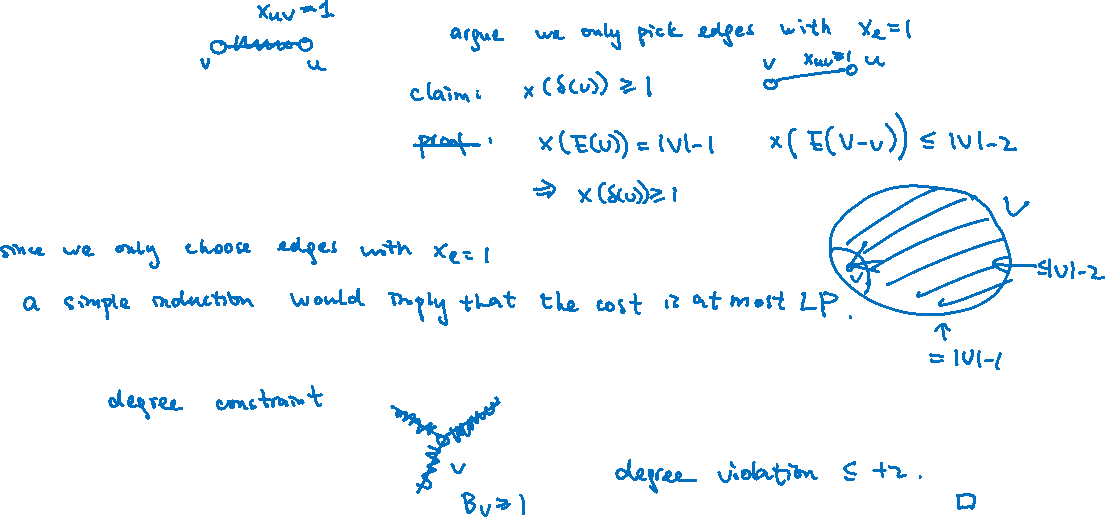 x_{uv}=1
v u
argue we only pick edges with x_e=1
v x_{uv}=1 u
claim: x(δ(v)) ≥ 1
proof: x(E(V)) = |V|-1 x(E(V-v)) ≤ |V|-2
⇒ x(δ(v)) ≥ 1
V
v
≤|V|-2
= |V|-1
since we only choose edges with x_e=1
a simple induction would imply that the cost is at most LP.
degree constraint
v
B_v ≥ 1
degree violation ≤ +2.
□